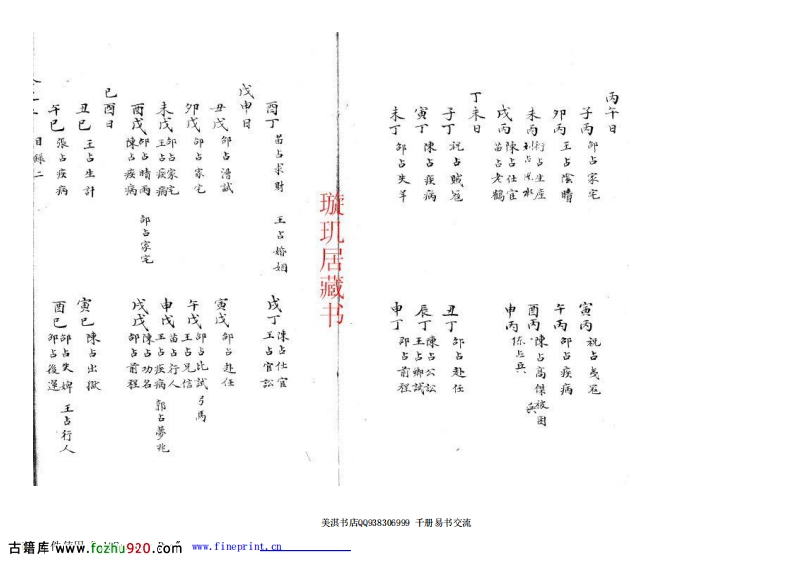 丙午日
子丙 邵占家宅
寅丙 祝占戎冠
卯丙 王占陰晴
午丙 邵占疾病
未丙 占生產 占風水
酉丙 陳占高傑被困 兵
戌丙 陳占仕宦 苗占老鶴
申丙 占兵
丁未日
子丁 祝占賊冠
丑丁 邵占赴任
寅丁 陳占疾病
辰丁 陳占公訟 王占鄉試
未丁 邵占失羊
申丁 邵占前程
酉丁 苗占求財 王占婚姻
戌丁 陳占仕宦 王占官訟
戊申日
丑戊 邵占潜試
寅戊 邵占赴任
卯戊 邵占家宅
午戊 邵占比試弓馬 王占兄信
未戊 邵占家宅 王占疾病
申戊 苗占行人 王占疾病 郭占夢兆
酉戊 邵占晴雨 陳占疾病 邵占家宅
戌戊 陳占功名 邵占前程
己酉日
丑己 王占生計
寅己 陳占出獄
午己 張占疾病
酉己 邵占失婢 邵占後運 王占行人
目錄二
璇玑居藏书
美淇书店QQ938306999 千册易书交流
古籍库 www.fozhu920.com
www.fineprint.cn